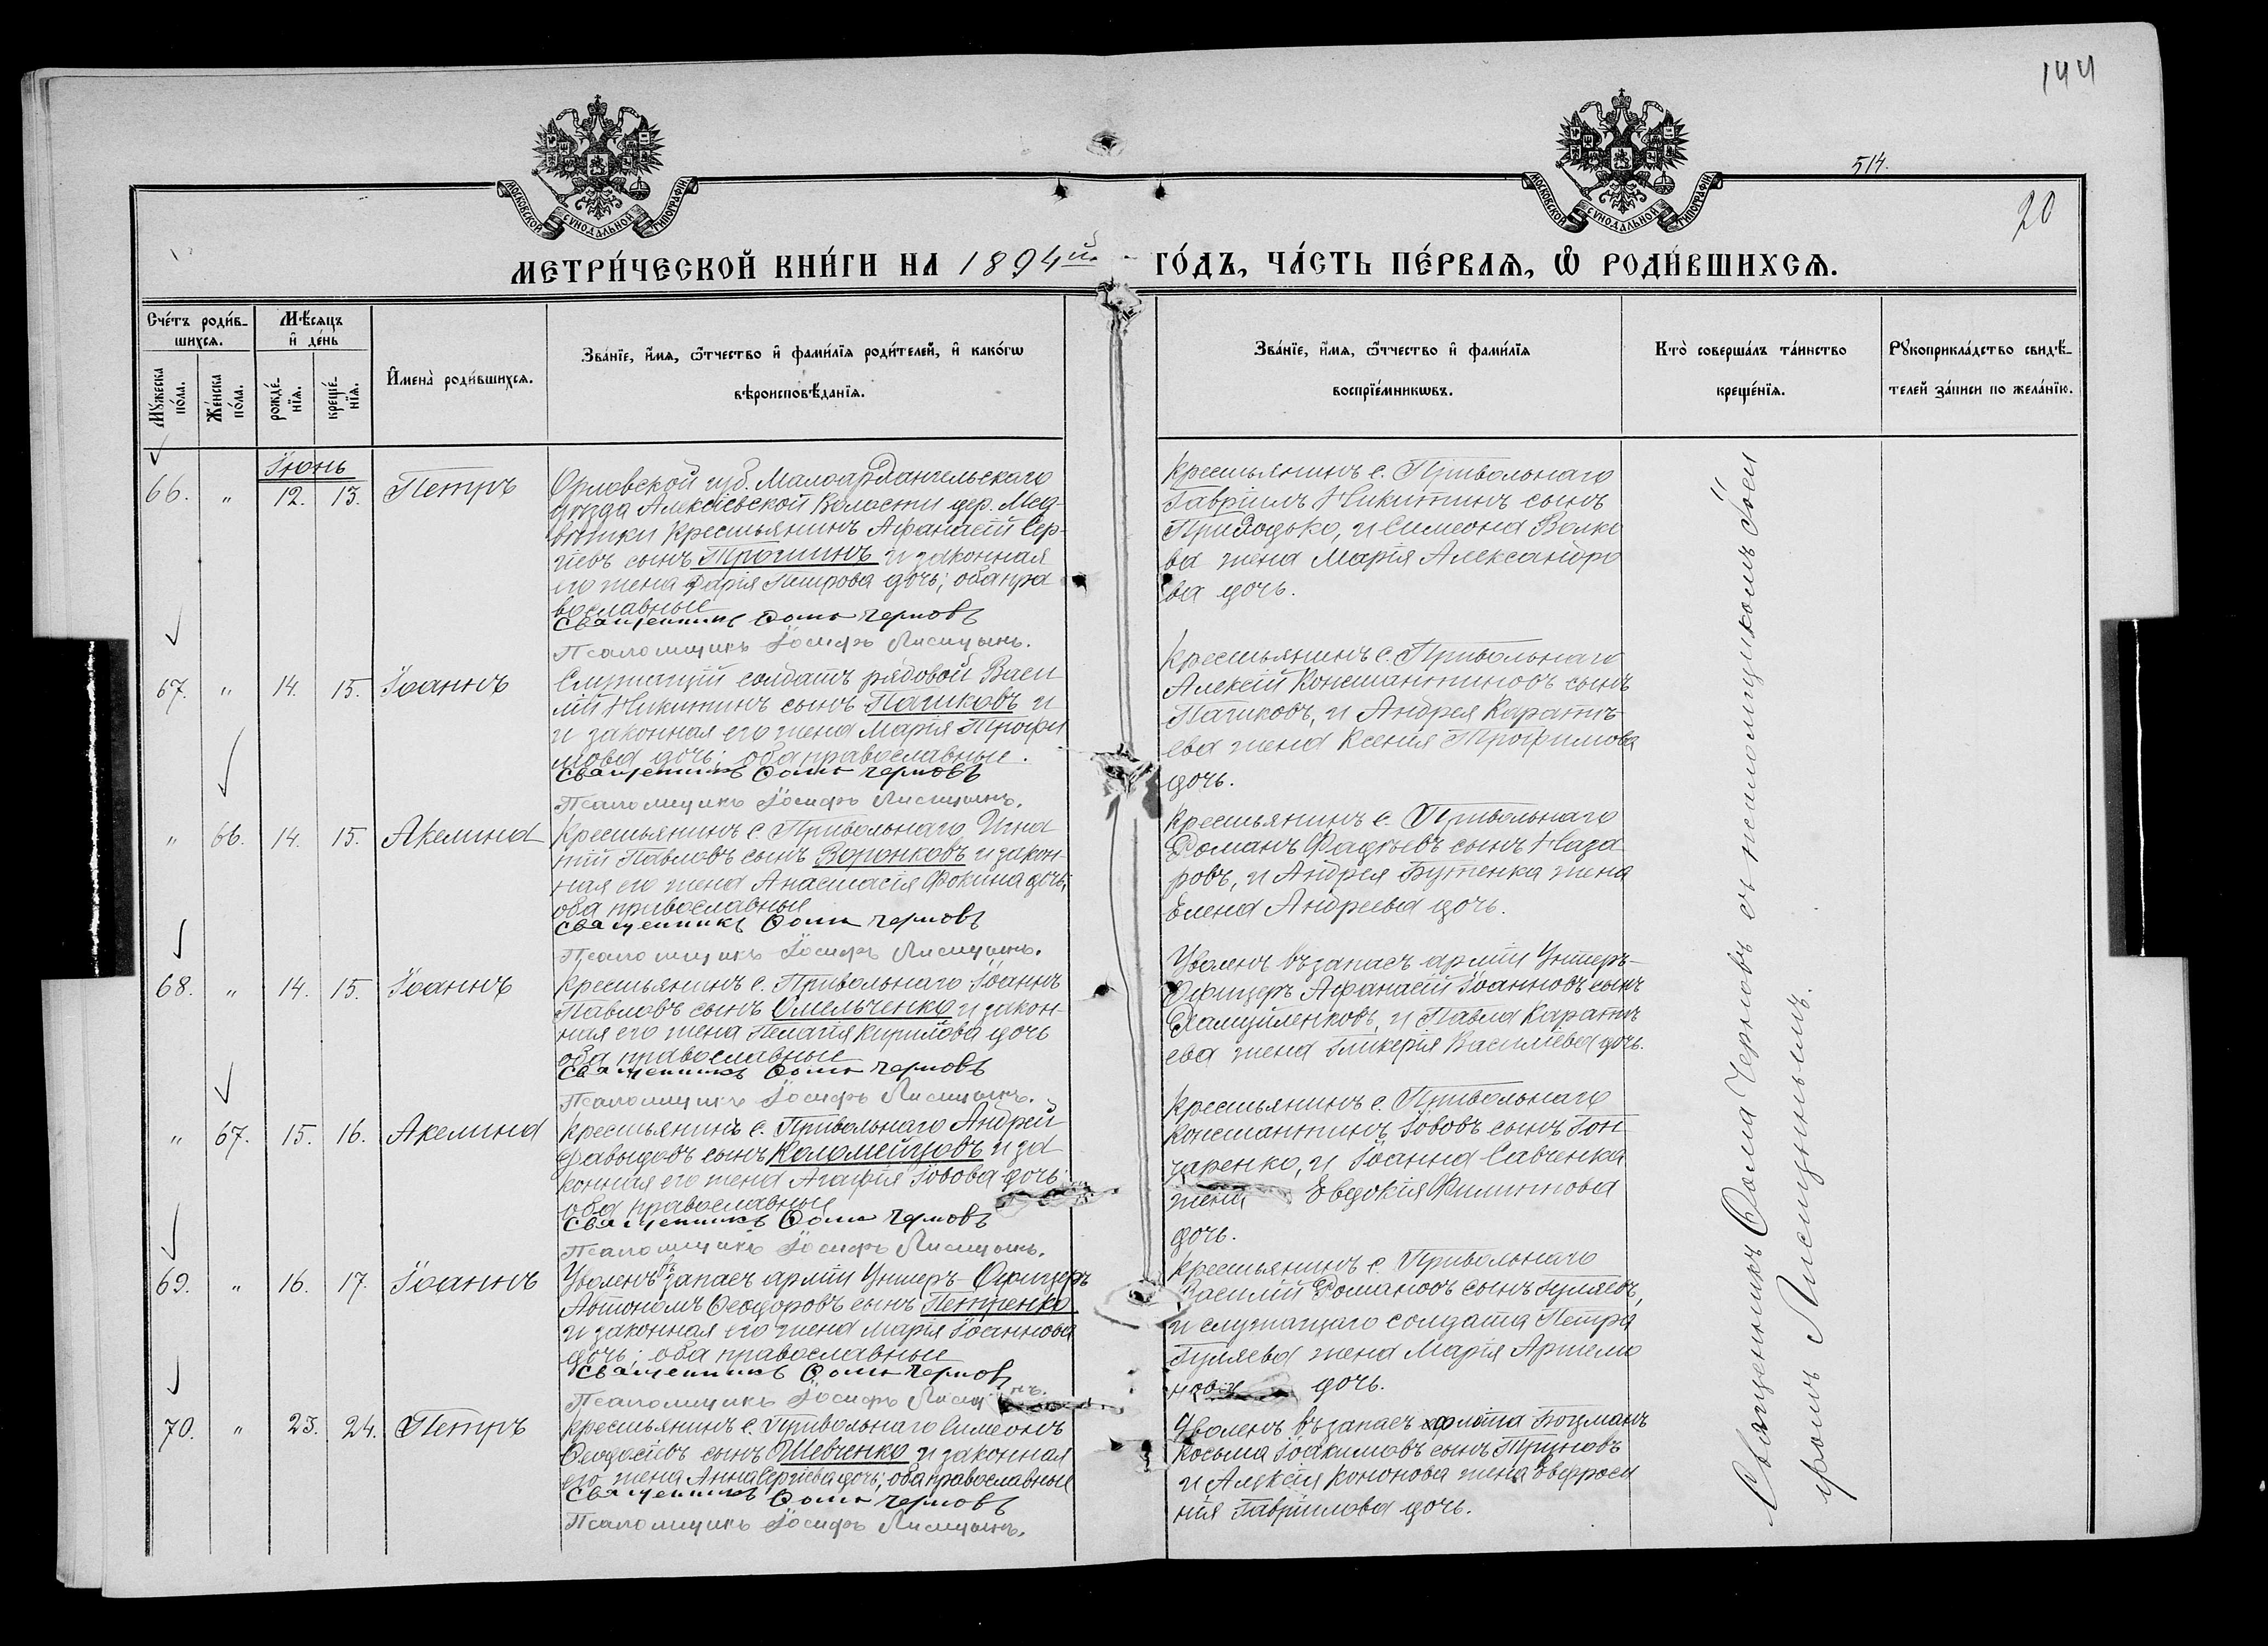 144
514.
20
МОСКОВСКОЙ СУНОДАЛЬНОЙ ТИПОГРАФІИ
МОСКОВСКОЙ СУНОДАЛЬНОЙ ТИПОГРАФІИ
МЕТРИ́ЧЕСКОЙ КНИ́ГИ НА 1894й ГО́ДЪ, ЧА́СТЬ ПЕ́РВАѦ, Ѡ РОДИ́ВШИХСѦ.
Сче́тъ роди́в-
шихсѧ.
Мѣ́сѧцъ
и де́нь
Мꙋ́жеска
по́ла.
Же́нска
по́ла.
рожде́-
нїѧ.
креще́-
нїѧ.
Имена̀ роди́вшихсѧ.
Зва́нїе, и́мѧ, ѻ́тчество и фами́лїѧ роди́телей, и како́гѡ
вѣроисповѣ́данїѧ.
Зва́нїе, и́мѧ, ѻ́тчество и фами́лїѧ
воспрїе́мникѡвъ.
Кто̀ соверша́лъ та́инство
креще́нїѧ.
Рꙋкоприкла́дство свидѣ́-
телей за́писи по жела́нїю.
Іюнь
66. " 12. 13. Петръ
Орловской губ. Малоархангельскаго
уѣзда Алексѣевской Волости дер. Мед-
вѣтки Крестьянинъ Афанасій Сер-
гѣевъ сынъ Трошинъ и законная
его жена Дарія Петрова дочь; оба пра
вославные
Священникъ Ѳома Черновъ
Псаломщикъ Іосифъ Лисицынъ.
Крестьянинъ с. Привольнаго
Гавріилъ Никитинъ сынъ
Приходько, и Симеона Волко
ва жена Марія Александро
ва дочь.
67. " 14. 15. Іоаннъ
Служащій солдатъ рядовой Васи
лій Никитинъ сынъ Пашковъ и
и законная его жена Марія Трофи
мова дочь; оба православные.
Священникъ Ѳома Черновъ
Псаломщикъ Іосифъ Лисицынъ.
Крестьянинъ с. Привольнаго
Алексій Константиновъ сынъ
Пашковъ, и Андрея Каратѣ-
ева жена Ксенія Трофимова
дочь.
" 66. 14. 15. Акелина
Крестьянинъ с. Привольнаго Игна
тій Павловъ сынъ Воронковъ и закон-
ная его жена Анастасія Фокина дочь;
оба православные
Священникъ Ѳома Черновъ
Псаломщикъ Іосифъ Лисицынъ.
Крестьянинъ с. Привольнаго
Романъ Фадѣевъ сынъ Наза
ровъ, и Андрея Бутенка жена
Елена Андреева дочь.
68. " 14. 15. Іоаннъ
Крестьянинъ с. Привольнаго Іоаннъ
Павловъ сынъ Омельченко и закон-
ная его жена Пелагія Кирилова дочь
оба православные
Священникъ Ѳома Черновъ
Псаломщикъ Іосифъ Лисицынъ.
Уволенъ въ запасъ арміи Унтеръ-
Офицеръ Афанасій Іоанновъ сынъ
и Павла Каратѣ
ева жена Гликерія Василіева дочь.
" 67. 15. 16. Акелина
Крестьянинъ с. Привольнаго Андрей
Давыдовъ сынъ Коломейцовъ и за
конная его жена Агафія Іовова дочь
оба православные
Священникъ Ѳома Черновъ
Псаломщикъ Іосифъ Лисицынъ.
Крестьянинъ с. Привольнаго
Константинъ Іововъ сынъ Гон
чаренко, и Іоанна Савченка
жена Евдокія Филиппова
дочь.
69. " 16. 17. Іоаннъ
Уволенъ въ запасъ арміи Унтеръ-Офицеръ
Автономъ Ѳеодоровъ сынъ Петренко
и законная его жена Марія Іоаннова
дочь; оба православные
Священникъ Ѳома Черновъ
Псаломщикъ Іосифъ Лисицынъ.
Крестьянинъ с. Привольнаго
Василій Романовъ сынъ Гуляевъ,
и служащаго солдата Петра
Гуляева жена Марія Артемо
нова дочь.
70. " 23. 24. Петръ
Крестьянинъ с. Привольнаго Симеонъ
Ѳеодосіевъ сынъ Шевченко и законная
его жена Анна Сергіева дочь; оба православные
Священникъ Ѳома Черновъ
Псаломщикъ Іосифъ Лисицынъ.
Уволенъ въ запасъ флота Боцманъ
Косьма Іоакимовъ сынъ Труновъ
и Алексія Кононова жена Евфроси
нія Гавріилова дочь.
Священникъ Ѳома Черновъ съ псаломщикомъ Іоси
фомъ Лисицынымъ.